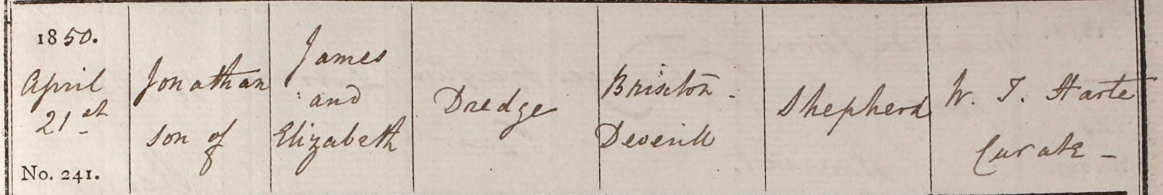 1850.
April
21st
No. 241.
Jonathan
son of
James
and
Elizabeth
Dredge
Brixton
Deverill
Shepherd
W. T. Harte
Curate